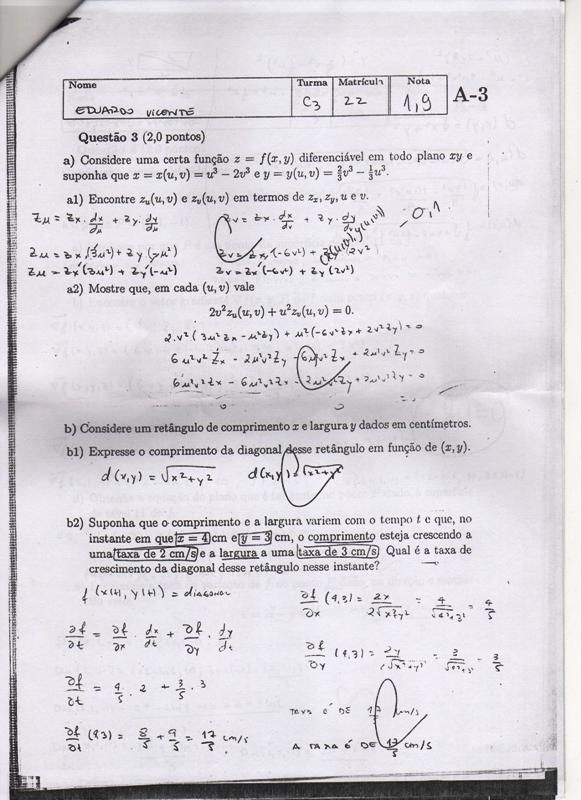 Nome Turma Matrícula Nota
EDUARDO VICENTE C3 22 1,9 A-3
Questão 3 (2,0 pontos)
a) Considere uma certa função z = f(x, y) diferenciável em todo plano xy e
suponha que x = x(u, v) = u³ − 2v³ e y = y(u, v) = ⅔v³ − ⅓u³.
a1) Encontre z_u(u, v) e z_v(u, v) em termos de z_x, z_y, u e v.
-0,1
Zu = Zx · dx/du + Zy · dy/du Zv = Zx · dx/dv + Zy · dy/dv
Zu = Zx (3u²) + Zy (-u²) Zv = Zx (-6v²) + Zy (2v²)
Zu = Zx (3u²) + Zy (-u²) Zv = Zx (-6v²) + Zy (2v²)
a2) Mostre que, em cada (u, v) vale
2v²z_u(u, v) + u²z_v(u, v) = 0.
2v² (3u² Zx - u² Zy) + u² (-6v² Zx + 2v² Zy) = 0
6u²v² Zx - 2u²v² Zy - 6u²v² Zx + 2u²v² Zy = 0
6u²v² Zx - 6u²v² Zx - 2u²v² Zy + 2u²v² Zy = 0
b) Considere um retângulo de comprimento x e largura y dados em centímetros.
b1) Expresse o comprimento da diagonal desse retângulo em função de (x, y).
d(x,y) = √x²+y² d(x,y) = √x²+y²
b2) Suponha que o comprimento e a largura variem com o tempo t e que, no
instante em que x = 4 cm e y = 3 cm, o comprimento esteja crescendo a
uma taxa de 2 cm/s e a largura a uma taxa de 3 cm/s. Qual é a taxa de
crescimento da diagonal desse retângulo nesse instante?
f (x(t), y(t)) = diagonal ∂f/∂x (4,3) = 2x/2√x²+y² = 4/√4²+3² = 4/5
∂f/∂t = ∂f/∂x · dx/dt + ∂f/∂y · dy/dt ∂f/∂y (4,3) = 2y/2√x²+y² = 3/√4²+3² = 3/5
∂f/∂t = 4/5 · 2 + 3/5 · 3 TAXA É DE 17/5 cm/s
∂f/∂t (4,3) = 8/5 + 9/5 = 17/5 cm/s A TAXA É DE 17/5 cm/s